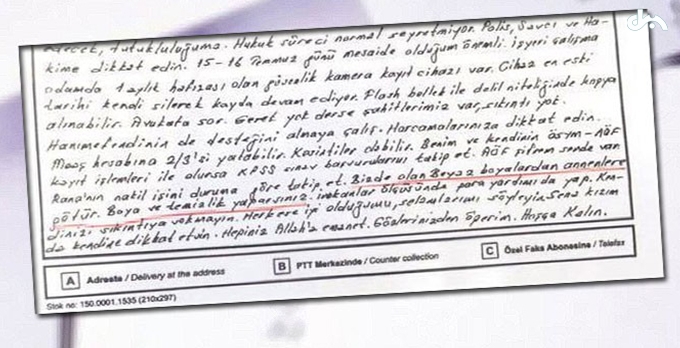 edecek, tutukluluğuma. Hukuk süreci normal seyretmiyor. Polis, Savcı ve Ha-
kime dikkat edin. 15-16 Temmuz günü mesaide olduğum önemli. İşyeri çalışma
odamda 1 aylık hafızası olan güvenlik kamera kayıt cihazı var. Cihaz en eski
tarihi kendi silerek kayda devam ediyor. Flash bellek ile delil niteliğinde kopya
alınabilir. Avukata sor. Gerek yok derse şahitlerimiz var, sıkıntı yok.
Hanımefendinin de desteğini almaya çalış. Harcamalarınıza dikkat edin.
Maaş hesabına 2/3'si yatabilir. Kesintiler olabilir. Benim ve kendinin ÖSYM-AÖF
kayıt işlemleri ile olursa KPSS sınav başvurularını takip et. AÖF şifrem sende var
Rana'nın nakil işini duruma göre takip et. Bizde olan Beyaz boyalardan annenlere
götür. Boya ve temizlik yaparsınız. imkanlar ölçüsünde para yardımı da yap. Ken-
dinizi sıkıntıya sokmayın. Herkese iyi olduğumu, selamlarımı söyleyin. Sena kızım
da kendine dikkat etsin. Hepiniz Allah'a emanet. Gözlerinizden öperim. Hoşça Kalın.
A Adreste / Delivery at the address B PTT Merkezinde / Counter collection C Özel Faks Abonesine / Telefax
Stok no: 150.0001.1535 (210x297)